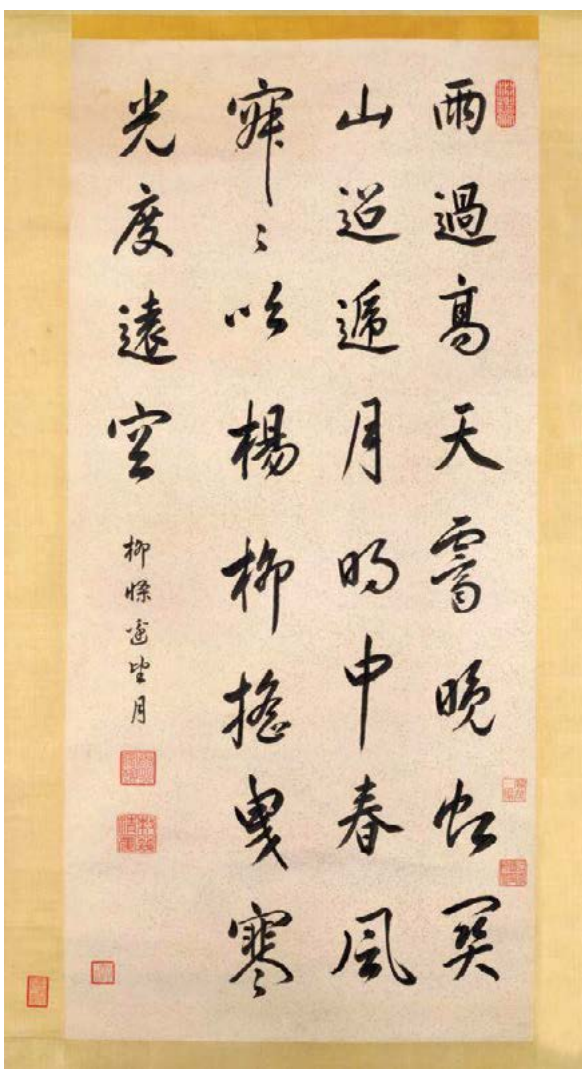 雨過高天霽晚虹關
山迢遞月明中春風
寂〻吹楊柳搖曳寒
光度遠空
柳條邊望月